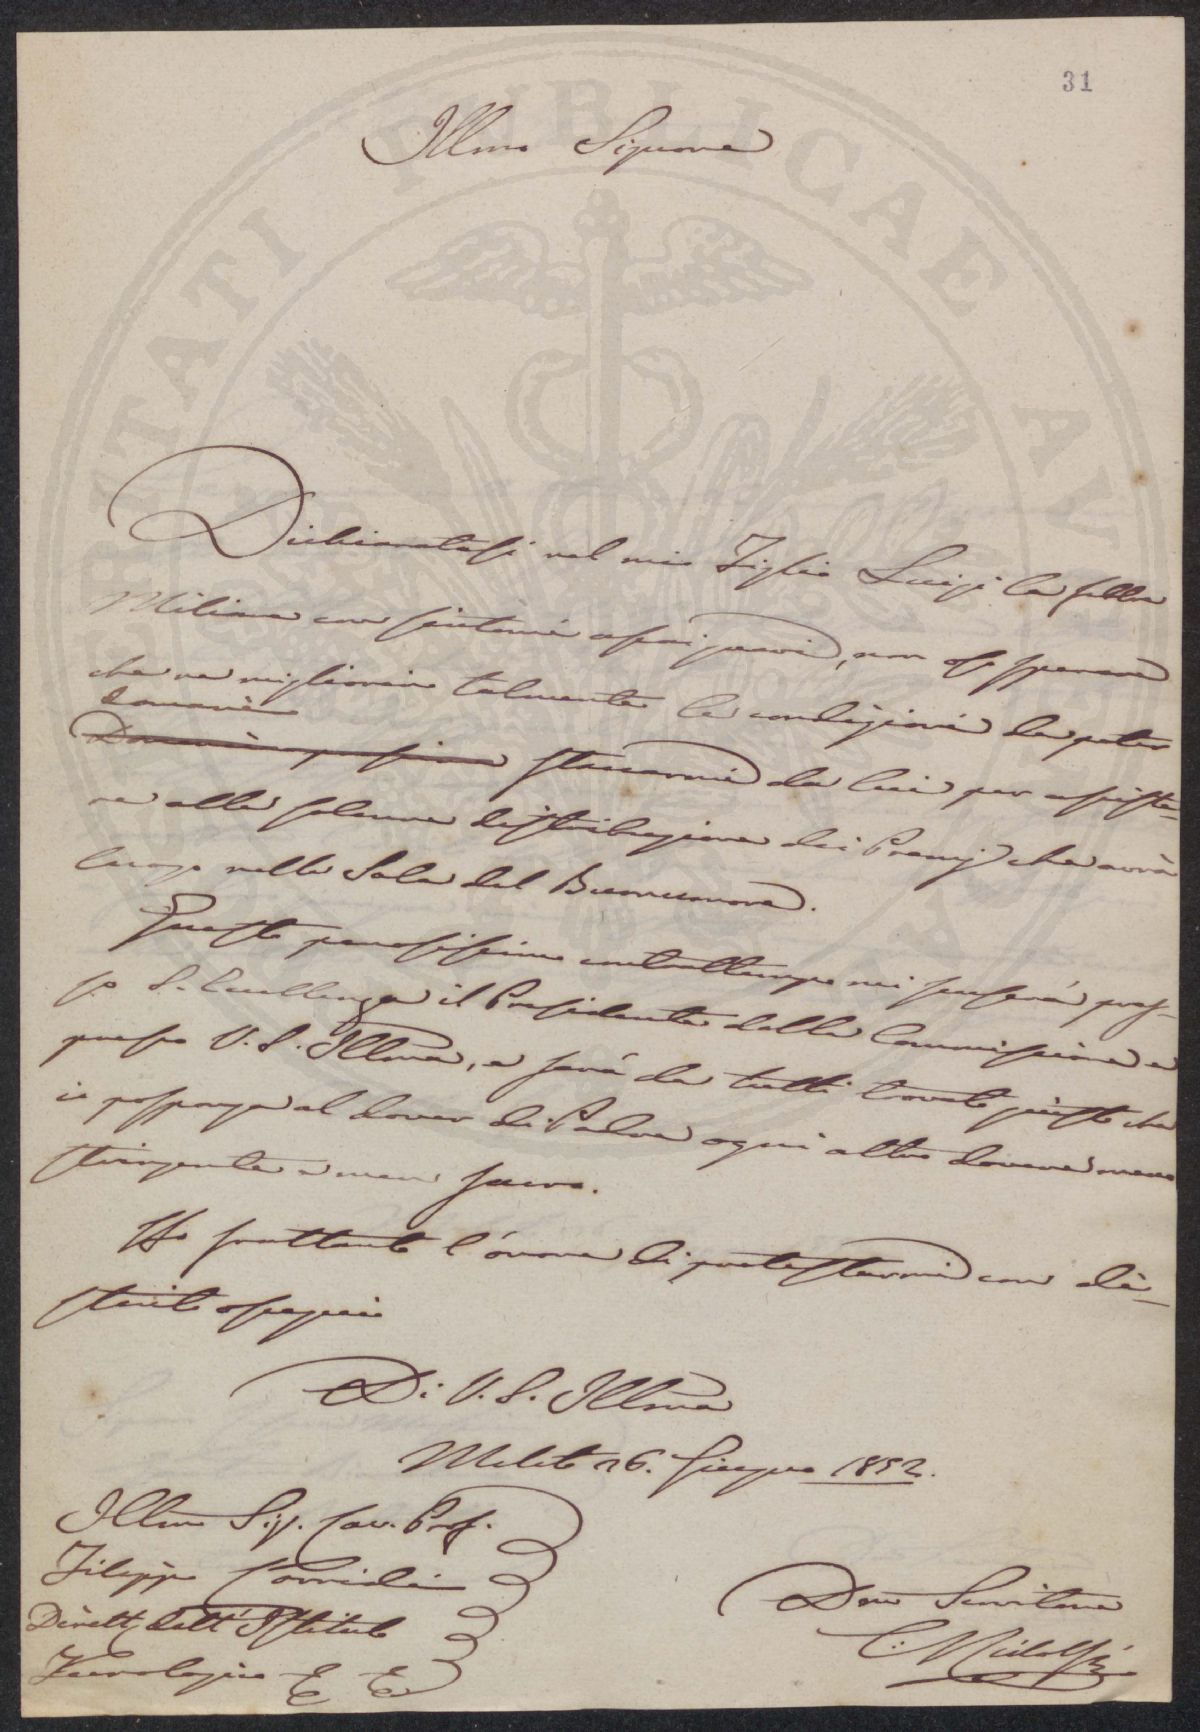 31
Illmo Signore
Dichiaratasi nel mio Figlio Luigi la febbre
Miliare con sintomi assai gravi, non oso sperare
che ne migliorin talmente le condizioni da poter
domani
staccarmi da lui per assiste-
re alla solenne distribuzione dei Premj che avrà
luogo nella Sala del Buonumore.
Questo penosissimo contrattempo mi scuserà pres-
so S. Eccellenza il Presidente della Commissione e
presso V. S. Illma, e sarà da tutti trovato giusto che
io posponga al dover di Padre ogni altro dovere meno
stringente e men sacro.
Ho frattanto l'onore di protestarmi con di-
stinto ossequio
Di V. S. Illma
Meleto 26. Giugno 1852.
Illmo Sig. Cav. Prof.
Filippo Corridi
Dirett. dell'Istituto
Tecnologico
Dmo Servitore
C. Ridolfi
PUBLICAE